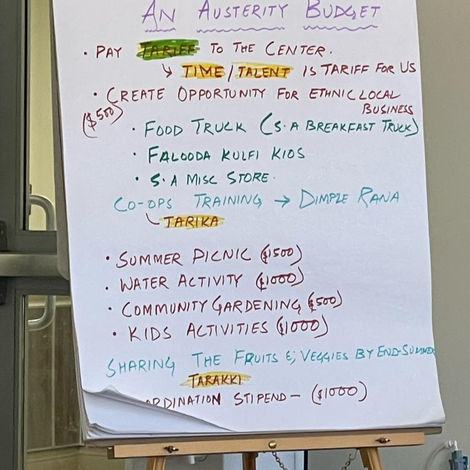 AN AUSTERITY BUDGET
• PAY TARIFF TO THE CENTER.
↳ TIME/TALENT IS TARIFF FOR US
• CREATE OPPORTUNITY FOR ETHNIC LOCAL
BUSINESS
($500)
• FOOD TRUCK (S.A BREAKFAST TRUCK)
• FALOODA KULFI KIDS
• S.A MISC STORE.
CO-OPS TRAINING → DIMPLE RANA
TARIKA
• SUMMER PICNIC ($1500)
• WATER ACTIVITY ($1000)
• COMMUNITY GARDENING ($500)
• KIDS ACTIVITIES ($1000)
SHARING THE FRUITS & VEGGIES BY END-SUMMER
TARAKKI
ORDINATION STIPEND - ($1000)